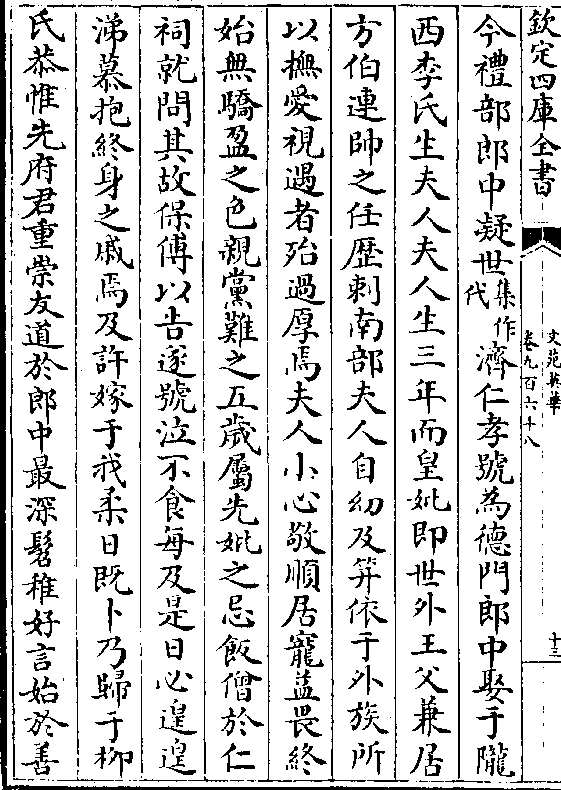 欽定四庫全書
文苑英華
卷九百六十八
十三
今禮部郎中凝世集作代濟仁孝號為德門郎中娶于隴
西李氏生夫人夫人生三年而皇妣即世外王父兼居
方伯連帥之任歴刺南部夫人自幼及笄依于外族所
以撫愛視遇者殆過厚焉夫人小心敬順居寵益畏終
始無驕盈之色親黨難之五歲屬先妣之忌飯僧於仁
祠就問其故保傅以告遂號泣不食每及是日必遑遑
涕慕抱終身之戚焉及許嫁于我柔日既卜乃歸于柳
氏恭惟先府君重崇友道於郎中最深髫稚好言始於善